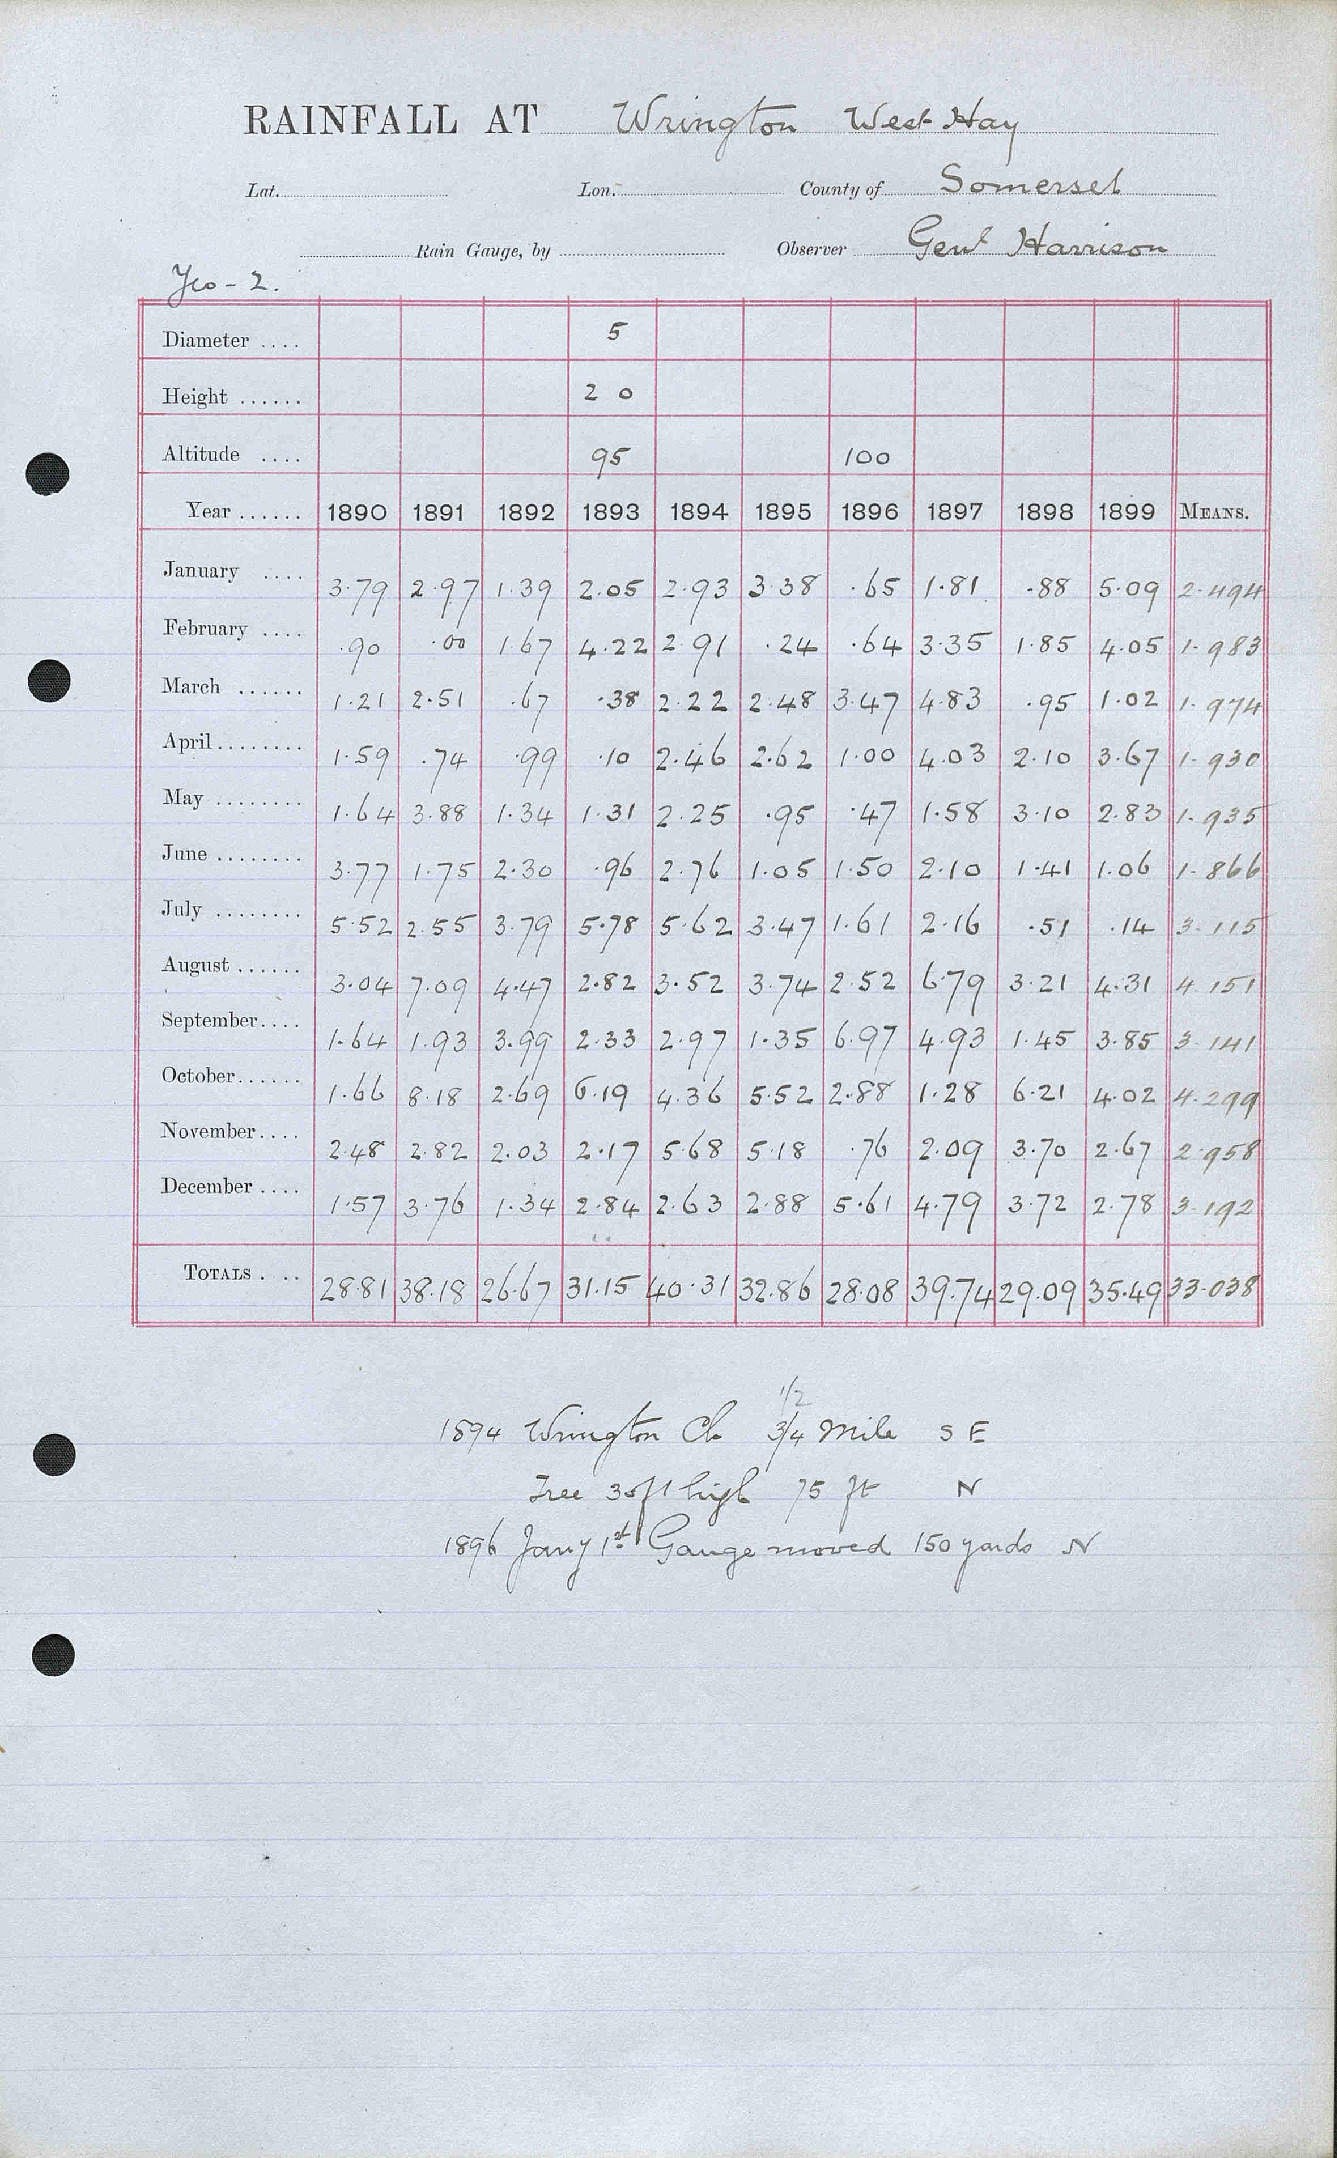 RAINFALL AT Wrington West Hay
Lat. Lon. County of Somerset
Rain Gauge, by Observer Genl Harrison
Yeo - 2.
Diameter .... 5
Height ...... 2 0
Altitude .... 95 100
Year ...... 1890 1891 1892 1893 1894 1895 1896 1897 1898 1899 MEANS.
January .... 3.79 2.97 1.39 2.05 2.93 3.38 .65 1.81 .88 5.09 2.494
February .... .90 .00 1.67 4.22 2.91 .24 .64 3.35 1.85 4.05 1.983
March ...... 1.21 2.51 .67 .38 2.22 2.48 3.47 4.83 .95 1.02 1.974
April ........ 1.59 .74 .99 .10 2.46 2.62 1.00 4.03 2.10 3.67 1.930
May ........ 1.64 3.88 1.34 1.31 2.25 .95 .47 1.58 3.10 2.83 1.935
June ........ 3.77 1.75 2.30 .96 2.76 1.05 1.50 2.10 1.41 1.06 1.866
July ........ 5.52 2.55 3.79 5.78 5.62 3.47 1.61 2.16 .51 .14 3.115
August ...... 3.04 7.09 4.47 2.82 3.52 3.74 2.52 6.79 3.21 4.31 4.151
September .... 1.64 1.93 3.99 2.33 2.97 1.35 6.97 4.93 1.45 3.85 3.141
October ...... 1.66 8.18 2.69 6.19 4.36 5.52 2.88 1.28 6.21 4.02 4.299
November .... 2.48 2.82 2.03 2.17 5.68 5.18 .76 2.09 3.70 2.67 2.958
December .... 1.57 3.76 1.34 2.84 2.63 2.88 5.61 4.79 3.72 2.78 3.192
TOTALS .... 28.81 38.18 26.67 31.15 40.31 32.86 28.08 39.74 29.09 35.49 33.038
1/2
1894 Wrington Ch. 3/4 Mile S E
Tree 30ft high 75 ft N
1896 Jany 1st Gauge moved 150 yards N